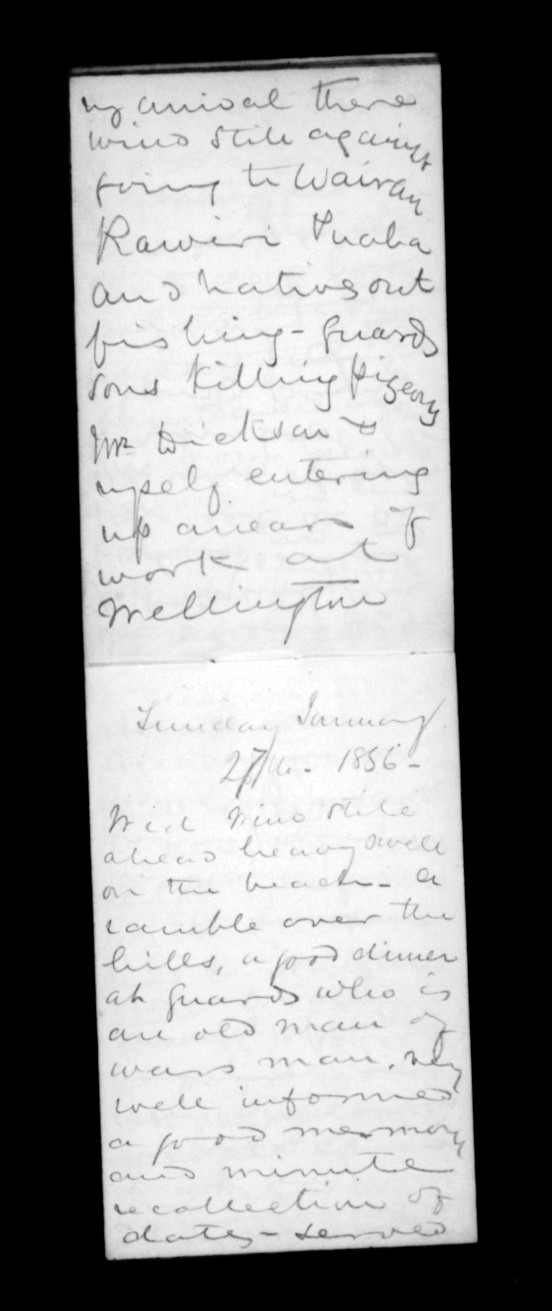 my arrival there
wind still against
going to Wairau
Rawiri Puaha
and natives out
fishing - Guards
sons killing pigeons
Mr. Dickson &
myself entering
up arrears of
work at
Wellington
Sunday January
27th - 1856 -
Wind still
ahead heavy swell
on the beach - a
ramble over the
hills, a good dinner
at Guards who is
an old man of
wars man, very
well informed
a good memory
and minute
recollection of
dates - served